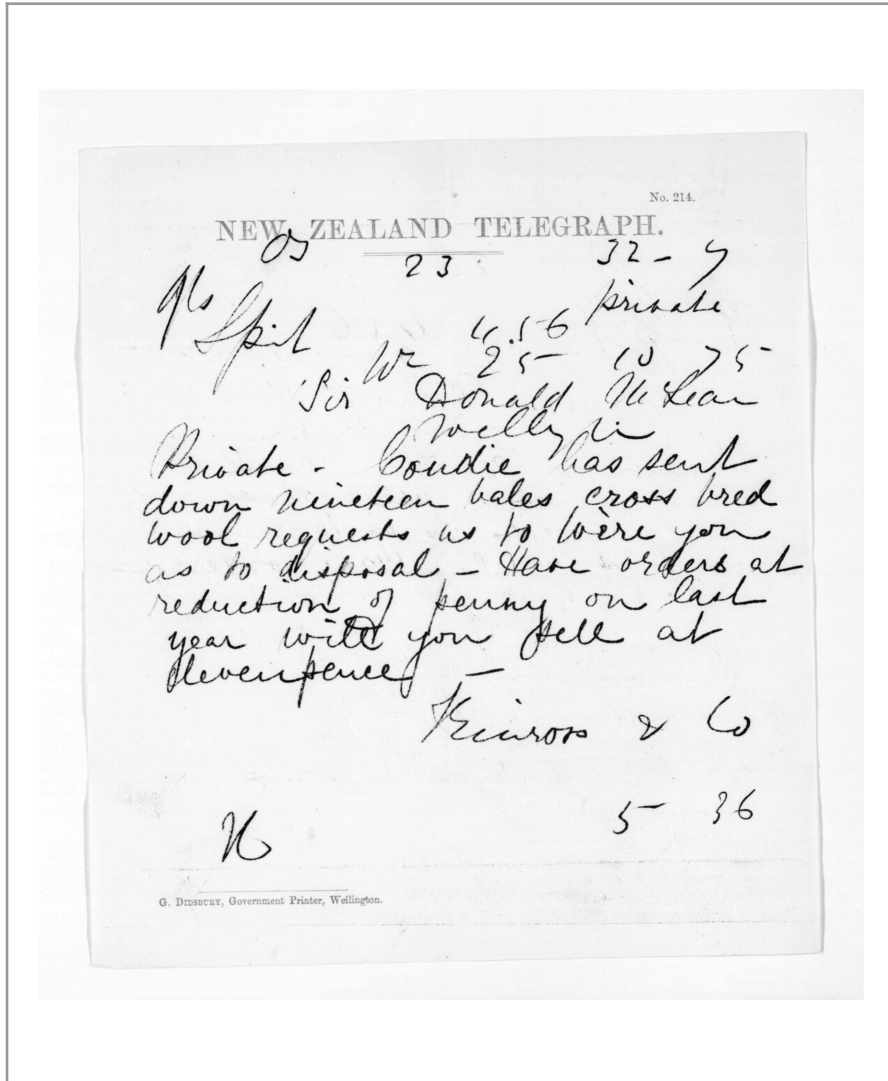 No. 214.
NEW ZEALAND TELEGRAPH.
23 32 - 7
Spit 4.56 private
25 10 75
Sir Donald McLean
Wellgtn
Private - Condie has sent
down nineteen bales cross bred
wool requests us to wire you
as to disposal - Have orders at
reduction of penny on last
year will you sell at
elevenpence -
Kinross & Co
5 36
G. DIDSBURY, Government Printer, Wellington.